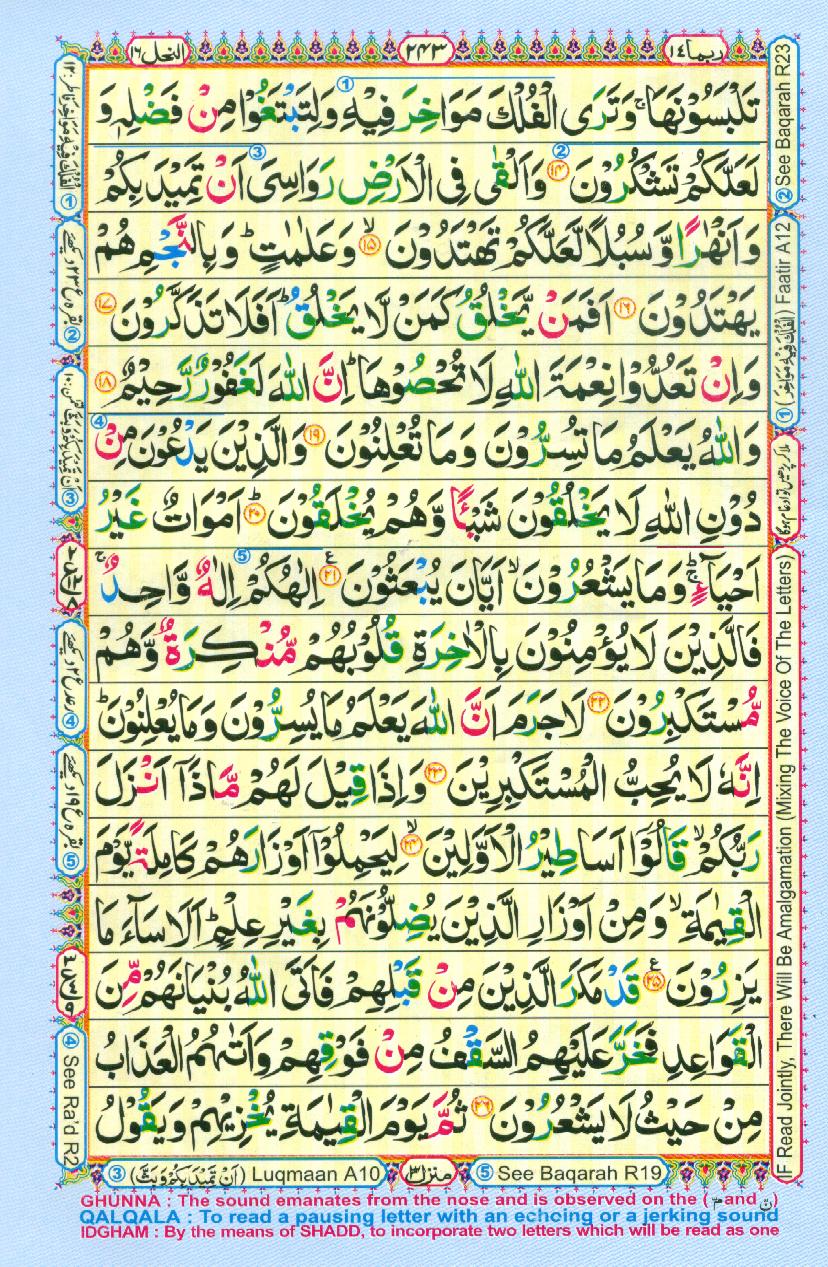 ربما ١٤ ٢٤٣ النحل ١٦
تَلْبَسُوْنَهَا ۚ وَتَرَى الْفُلْكَ مَوَاخِرَ فِيْهِ ① وَلِتَبْتَغُوْا مِنْ فَضْلِهٖ وَ
لَعَلَّكُمْ تَشْكُرُوْنَ ② ١٤ وَاَلْقٰى فِى الْاَرْضِ رَوَاسِىَ ③ اَنْ تَمِيْدَ بِكُمْ
وَاَنْهٰرًا وَّسُبُلًا لَّعَلَّكُمْ تَهْتَدُوْنَ ۙ ١٥ وَعَلٰمٰتٍ ؕ وَبِالنَّجْمِ هُمْ
يَهْتَدُوْنَ ١٦ اَفَمَنْ يَّخْلُقُ كَمَنْ لَّا يَخْلُقُ ؕ اَفَلَا تَذَكَّرُوْنَ ١٧
وَاِنْ تَعُدُّوْا نِعْمَةَ اللّٰهِ لَا تُحْصُوْهَا ؕ اِنَّ اللّٰهَ لَغَفُوْرٌ رَّحِيْمٌ ١٨
وَاللّٰهُ يَعْلَمُ مَا تُسِرُّوْنَ وَمَا تُعْلِنُوْنَ ١٩ وَالَّذِيْنَ يَدْعُوْنَ مِنْ ④
دُوْنِ اللّٰهِ لَا يَخْلُقُوْنَ شَيْـًٔا وَّهُمْ يُخْلَقُوْنَ ؕ ٢٠ اَمْوَاتٌ غَيْرُ
اَحْيَآءٍ ۚ وَمَا يَشْعُرُوْنَ ۙ اَيَّانَ يُبْعَثُوْنَ ٢١ ع ⑤ اِلٰهُكُمْ اِلٰهٌ وَّاحِدٌ ۚ
فَالَّذِيْنَ لَا يُؤْمِنُوْنَ بِالْاٰخِرَةِ قُلُوْبُهُمْ مُّنْكِرَةٌ وَّهُمْ
مُّسْتَكْبِرُوْنَ ٢٢ لَا جَرَمَ اَنَّ اللّٰهَ يَعْلَمُ مَا يُسِرُّوْنَ وَمَا يُعْلِنُوْنَ ؕ
اِنَّهٗ لَا يُحِبُّ الْمُسْتَكْبِرِيْنَ ٢٣ وَاِذَا قِيْلَ لَهُمْ مَّاذَآ اَنْزَلَ
رَبُّكُمْ ۙ قَالُوْٓا اَسَاطِيْرُ الْاَوَّلِيْنَ ۙ ٢٤ لِيَحْمِلُوْٓا اَوْزَارَهُمْ كَامِلَةً يَّوْمَ
الْقِيٰمَةِ ۙ وَمِنْ اَوْزَارِ الَّذِيْنَ يُضِلُّوْنَهُمْ بِغَيْرِ عِلْمٍ ؕ اَلَا سَآءَ مَا
يَزِرُوْنَ ٢٥ ع قَدْ مَكَرَ الَّذِيْنَ مِنْ قَبْلِهِمْ فَاَتَى اللّٰهُ بُنْيَانَهُمْ مِّنَ
الْقَوَاعِدِ فَخَرَّ عَلَيْهِمُ السَّقْفُ مِنْ فَوْقِهِمْ وَاَتٰىهُمُ الْعَذَابُ
مِنْ حَيْثُ لَا يَشْعُرُوْنَ ٢٦ ثُمَّ يَوْمَ الْقِيٰمَةِ يُخْزِيْهِمْ وَيَقُوْلُ
② See Baqarah R23
① (الْفُلْكَ فِيْهِ مَوَاخِرَ) Faatir A12
IF Read Jointly, There Will Be Amalgamation (Mixing The Voice Of The Letters)
④ See Ra'd R2
③ (اَنْ تَمِيْدَ بِكُمْ وَبَثَّ) Luqmaan A10
منزل ٣
⑤ See Baqarah R19
GHUNNA : The sound emanates from the nose and is observed on the (مّ and نّ)
QALQALA : To read a pausing letter with an echoing or a jerking sound
IDGHAM : By the means of SHADD, to incorporate two letters which will be read as one